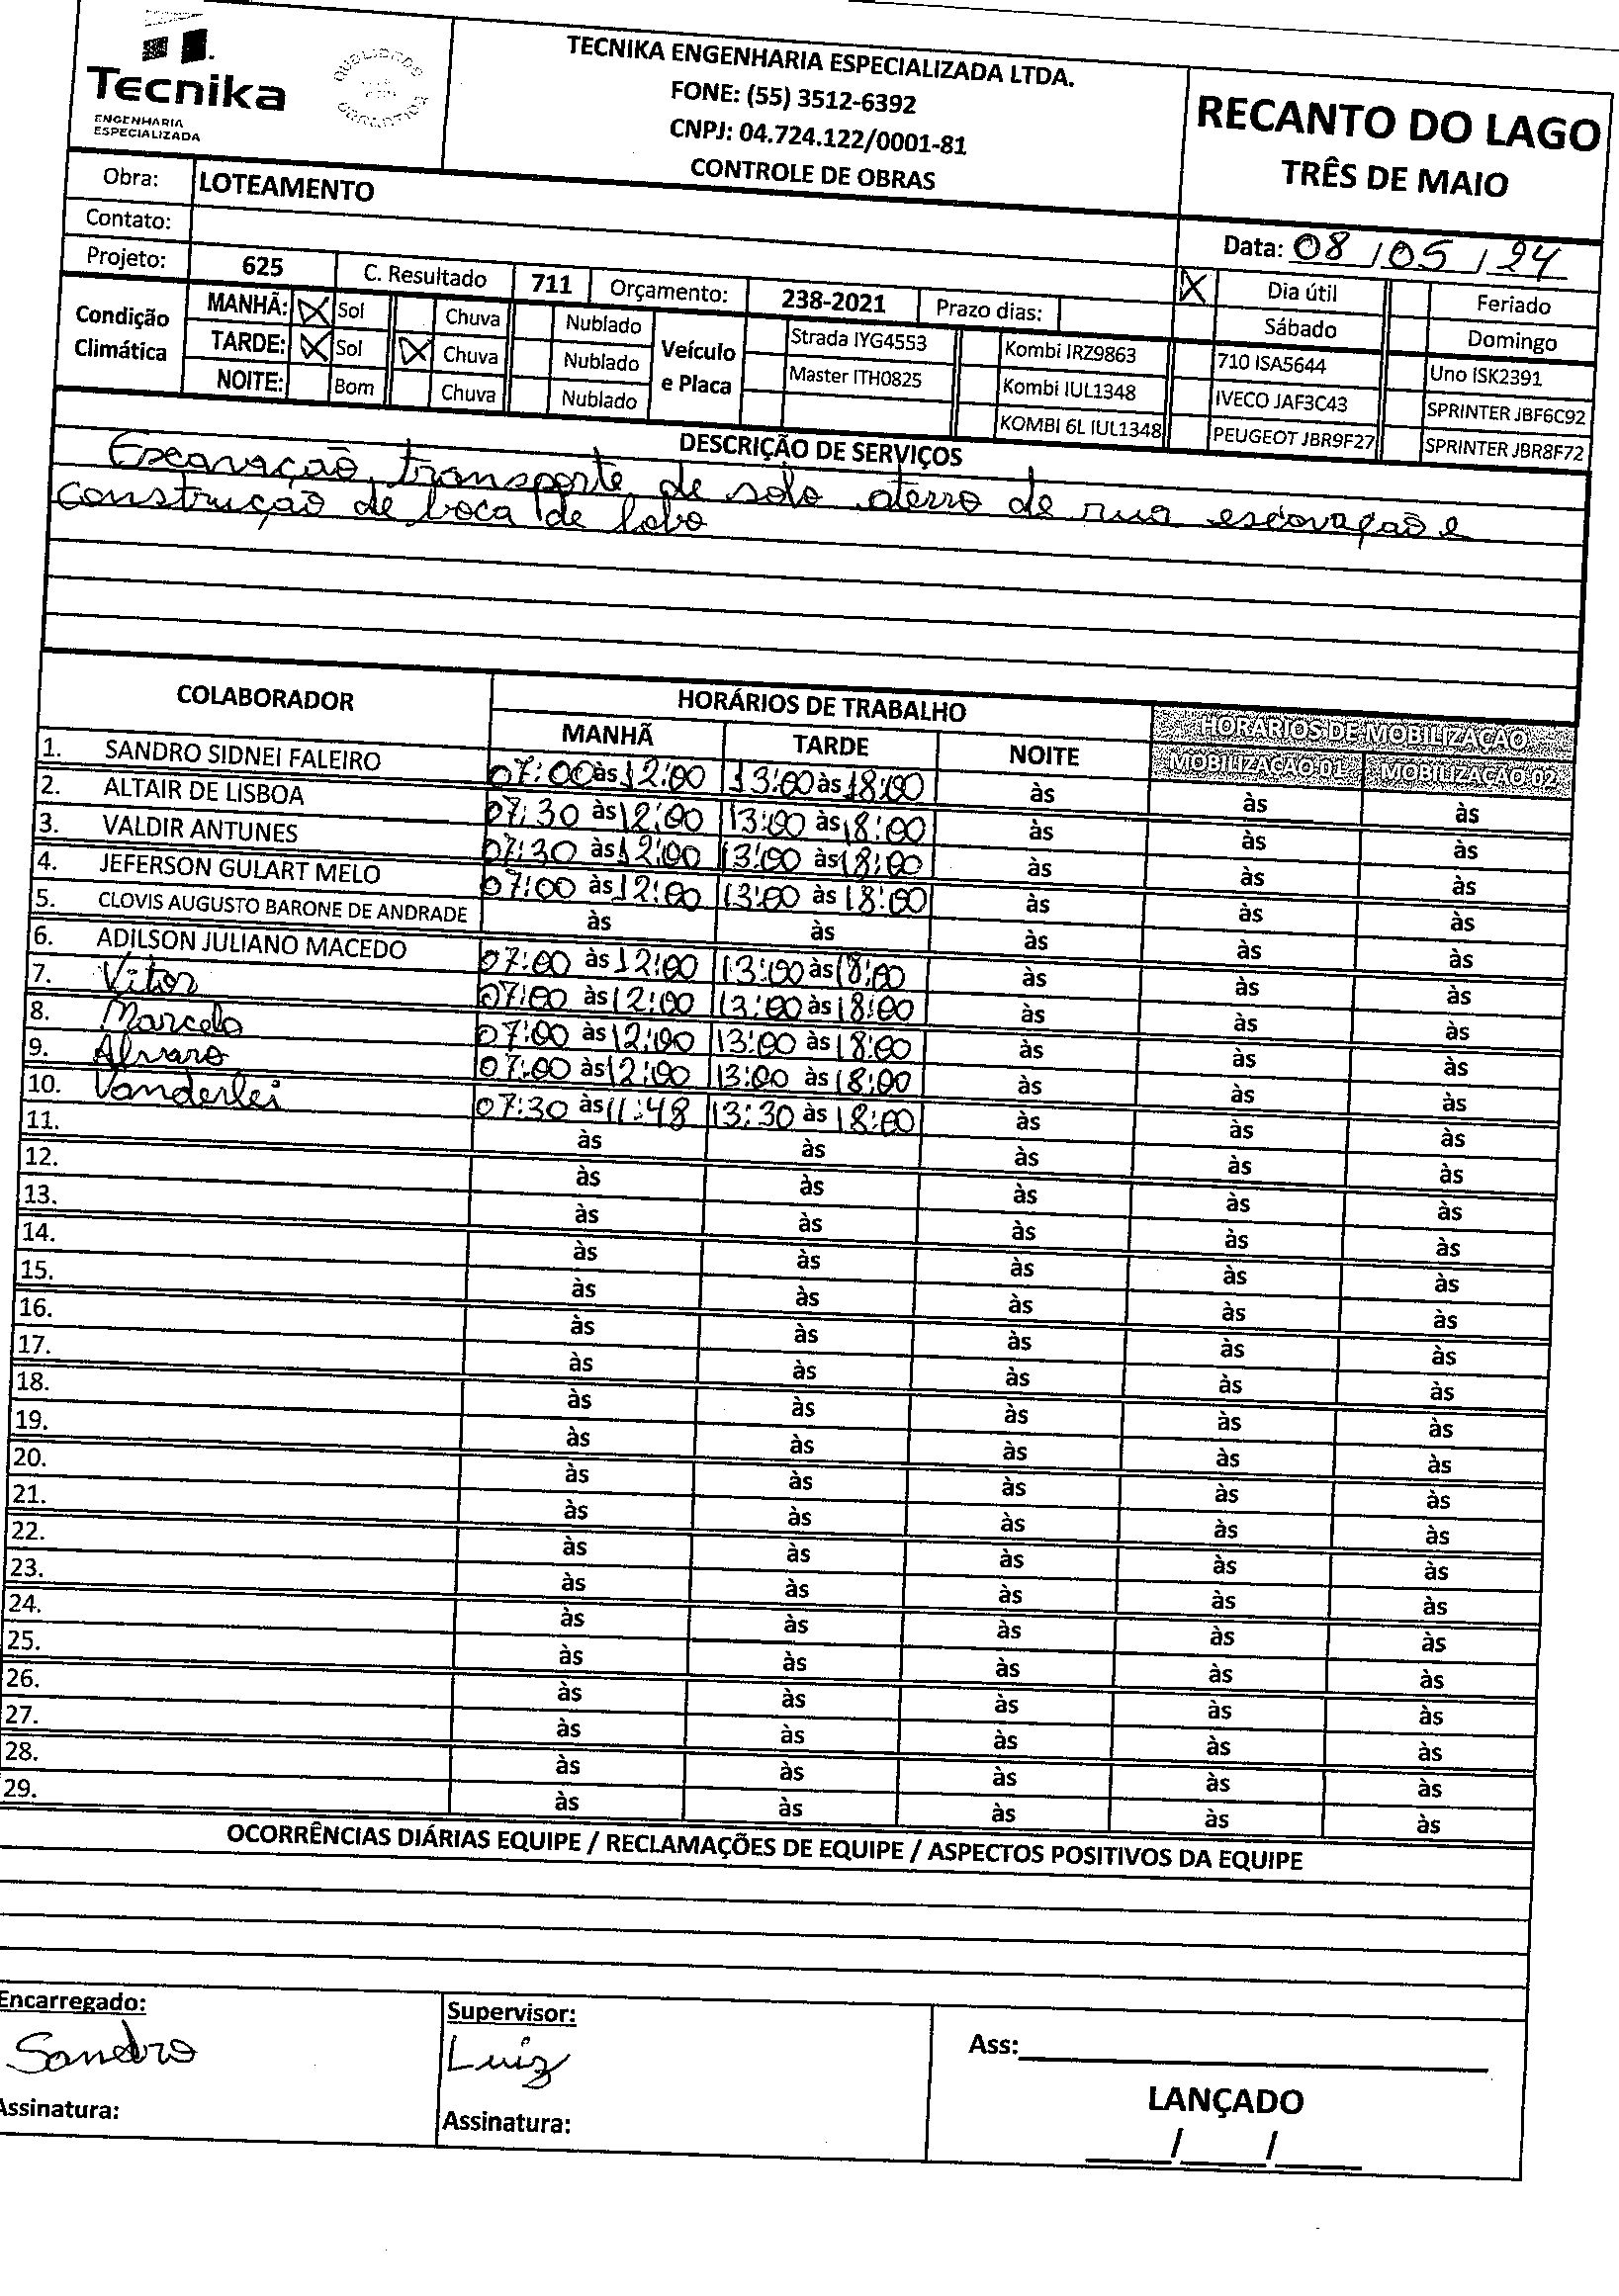 Tecnika
ENGENHARIA
ESPECIALIZADA
TECNIKA ENGENHARIA ESPECIALIZADA LTDA.
FONE: (55) 3512-6392
CNPJ: 04.724.122/0001-81
CONTROLE DE OBRAS
RECANTO DO LAGO
TRÊS DE MAIO
Obra: LOTEAMENTO
Contato:
Data: 08/05/24
Projeto: 625 C. Resultado 711 Orçamento: 238-2021 Prazo dias:
X Dia útil Feriado
Sábado Domingo
Condição Climática
MANHÃ: X Sol Chuva Nublado
TARDE: X Sol X Chuva Nublado
NOITE: Bom Chuva Nublado
Veículo e Placa
Strada IYG4553 Kombi IRZ9863 710 ISA5644 Uno ISK2391
Master ITH0825 Kombi IUL1348 IVECO JAF3C43 SPRINTER JBF6C92
KOMBI 6L IUL1348 PEUGEOT JBR9F27 SPRINTER JBR8F72
DESCRIÇÃO DE SERVIÇOS
Escavação, transporte de solo aterro de rua escavação e
construção de boca de lobo
COLABORADOR HORÁRIOS DE TRABALHO HORÁRIOS DE MOBILIZAÇÃO
MANHÃ TARDE NOITE MOBILIZAÇÃO 01 MOBILIZAÇÃO 02
1. SANDRO SIDNEI FALEIRO 07:00 às 12:00 13:00 às 18:00 às às às
2. ALTAIR DE LISBOA 07:30 às 12:00 13:00 às 18:00 às às às
3. VALDIR ANTUNES 07:30 às 12:00 13:00 às 18:00 às às às
4. JEFERSON GULART MELO 07:00 às 12:00 13:00 às 18:00 às às às
5. CLOVIS AUGUSTO BARONE DE ANDRADE às às às às às
6. ADILSON JULIANO MACEDO 07:00 às 12:00 13:00 às 18:00 às às às
7. Vitor 07:00 às 12:00 13:00 às 18:00 às às às
8. Marcelo 07:00 às 12:00 13:00 às 18:00 às às às
9. Alvaro 07:00 às 12:00 13:00 às 18:00 às às às
10. Vanderlei 07:30 às 11:48 13:30 às 18:00 às às às
11. às às às às às
12. às às às às às
13. às às às às às
14. às às às às às
15. às às às às às
16. às às às às às
17. às às às às às
18. às às às às às
19. às às às às às
20. às às às às às
21. às às às às às
22. às às às às às
23. às às às às às
24. às às às às às
25. às às às às às
26. às às às às às
27. às às às às às
28. às às às às às
29. às às às às às
OCORRÊNCIAS DIÁRIAS EQUIPE / RECLAMAÇÕES DE EQUIPE / ASPECTOS POSITIVOS DA EQUIPE
Encarregado: Supervisor:
Sandro Luiz Ass:
LANÇADO
Assinatura: Assinatura:
/ /